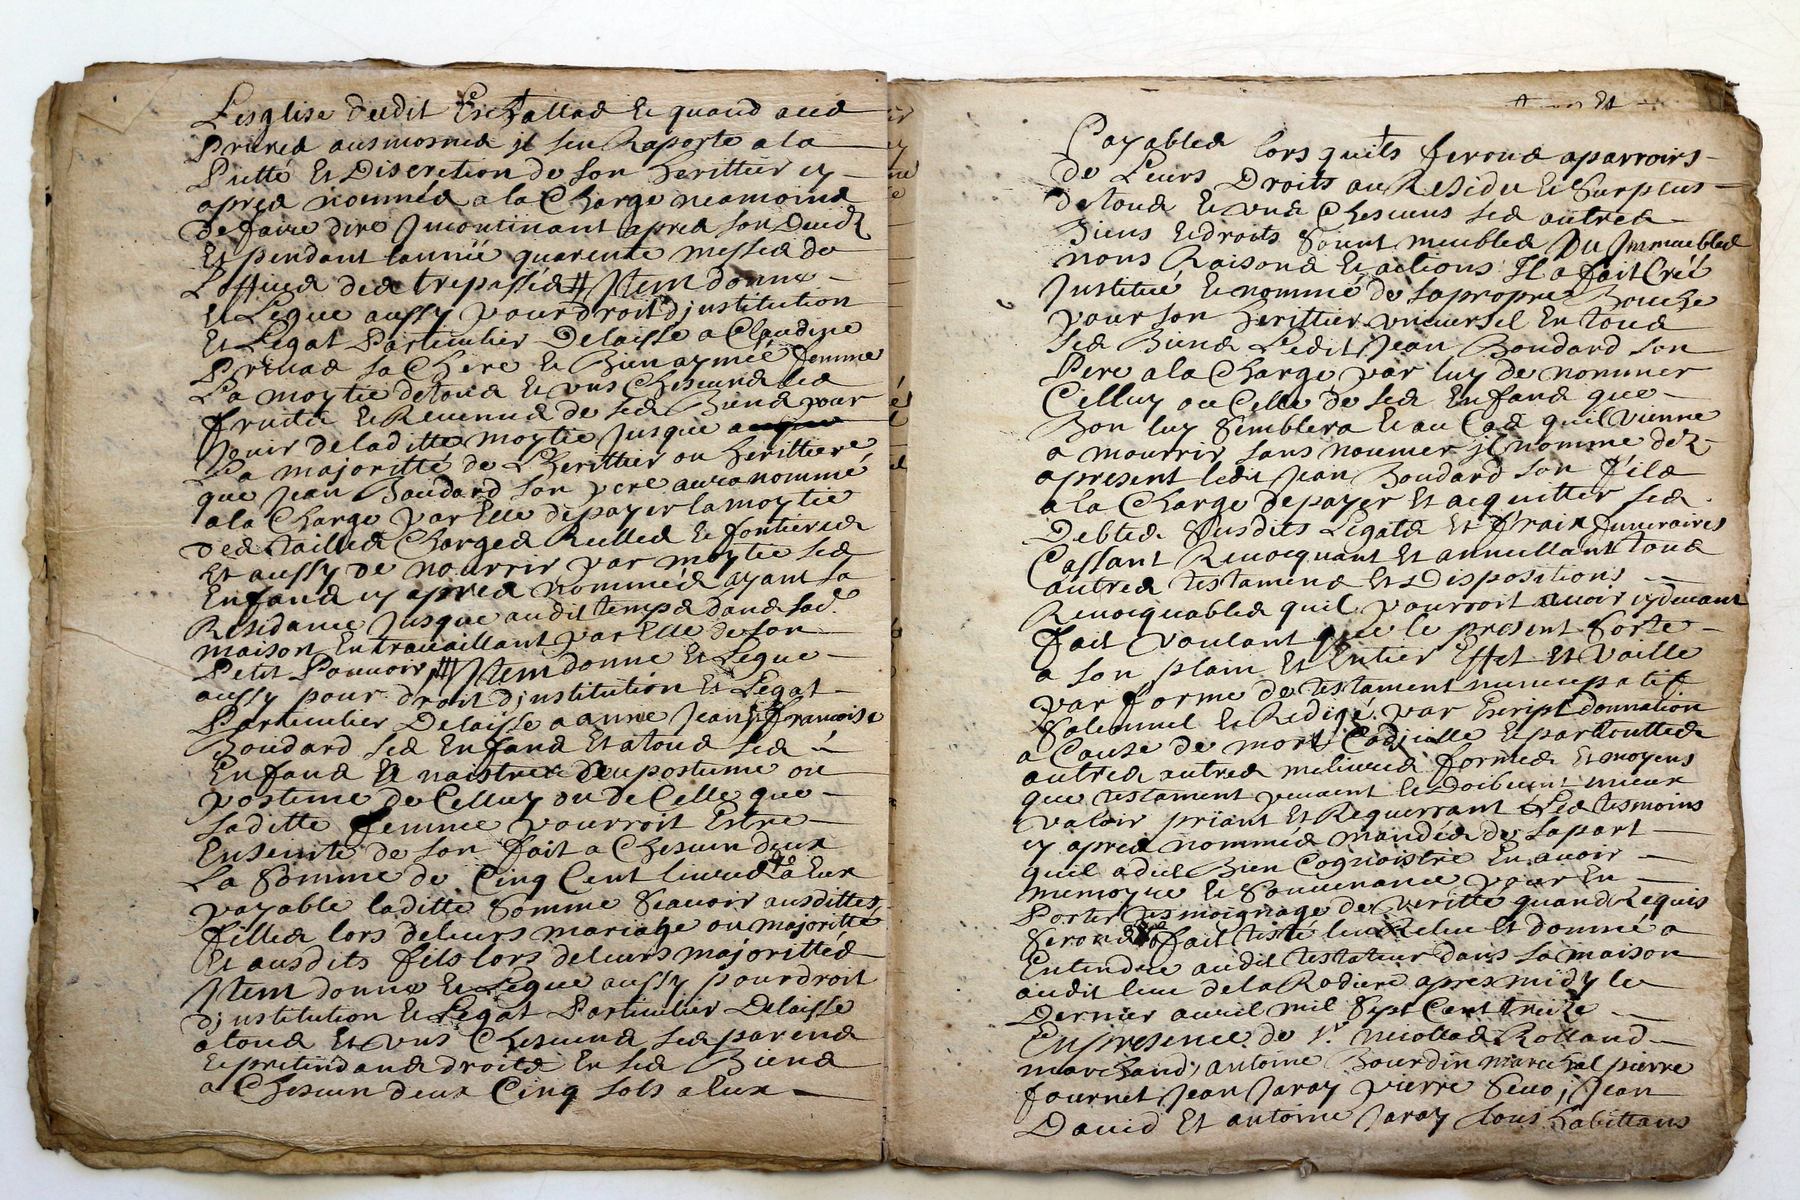 Lesglise dudit Eschallas & quand aus
Prieres ausmosnes jl sen Raporte a la
Pietté Et Discretion de son herittier cy
apres nommés a la Charge neamoins
De faire dire Jncontinant apres son Deceds
Et pendant lannéé quarente messes de
Loffices des trepassés # Jtem donne
Et Legue aussy pour droit djnstitution
Et Legat Particulier Delaisse a Claudine
Privas sa Chere & Bien aymeé femme
La moytie de tous & uns Chescuns ses
fruits & Revenus de ses Biens pour
Jouir de laditte moytie Jusque
La majoritté de Lherittier ou herittiere
que Jean Boudard son pere aura nommé
a la Charge par Elle de payer la moytie
des tailles Charges Reelles & fontieres
Et aussy de nourrir par moytie ses
Enfans cy apres nommes ayant sa
Residance Jusque audit temps dans sad.
maison En travaillant par Elle de son
Petit Pouvoir # Jtem donne Et Legue
aussy pour droit djnstitution Et Legat
Particulier Delaisse a anne Jean françoise
Boudard ses Enfans Et a tous ses
Enfans a naistres Deupostume ou
postume de Celluy ou de Celle que
laditte femme pourroit Estre
Enseinte de son fait a Chescun deux
La Somme de Cinq Cent livres a Eux
payable laditte Somme Scavoir ausdittes
filles lors de leurs mariage ou majoritté
Et ausdits fils lors de leurs majorittés
Jtem donne & Legue aussy pour droit
djnstitution & Legat Particulier Delaisse
a tous Et uns Chescuns ses parens
& pretendans droits En ses Biens
a Chescun deux Cinq sols a Eux
Payables lors quils feront aparroirs
de Leurs Droits au Residu & Surplus
de tous & uns Chescuns ses autres
Biens & droits Sount meubles Ou Jmmeubles
noms Raisons & actions Il a fait Créé
Jnstitué & nommé de sa propre Bouche
pour son herittier universel En tous
ses Biens Ledit Jean Boudard son
Pere a la Charge par luy de nommer
Celluy ou Celle de ses Enfans que
Bon luy Semblera & au Cas quil vienne
a mourrir sans noumer jl nomme dez
apresent ledit Jean Boudard son fils
a la Charge de payer Et acquitter ses
Debtes Susdits Legats Et fraix funeraires
Cassant Revocquant Et annullant tous
autres testamens Et Dispositions
Revocquables quil pourroit avoir cy devant
fait voulant que le present Sorte
a son plain Et Entier Effet Et vaille
par forme de testament nuncupatif
Solemnel & Redigé par Escript donnation
a Cause de mort Codicille & par touttes
autres autres melieures formes Et moyens
que testament peuvent & doibvent mieux
valoir priant Et Requerrant Les tesmoins
cy apres nommés mandés de sa part
quil a dict Bien Cognoistre En avoir
memoyre & Souvenance pour En
Porter tesmoignage de veritté quand Requis
Seront fait testé leu Releu Et donné a
Entendre audit testateur dans sa maison
audit lieu de la Rodiere apres midy le
Dernier avril mil Sept Cent treize
En presence de Sr. nicollas Rolland
marchand, antoine Bourdin marechal pierre
fournet Jean Jaray pierre Seuo, Jean
David Et antoine Jaray tous habittans